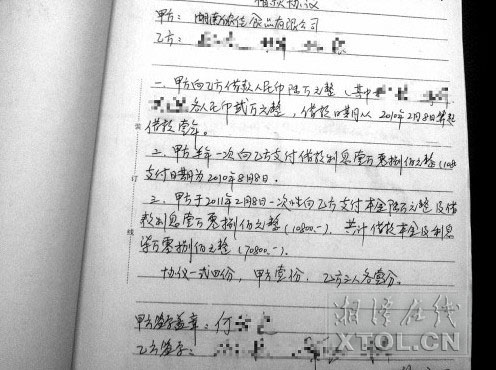 借款协议
甲方：湖南 食品有限公司
乙方：
一、甲方向乙方借款人民币陆万元整（其中
各人民币贰万元整，借款日期从2010年2月8日算起
借款壹年。
二、甲方半年一次向乙方支付借款利息壹万零捌佰元整（108
支付日期为2010年8月8日。
三、甲方于2011年2月8日一次性向乙方支付本金陆万元整及借
款利息壹万零捌佰元整（10800.-）。共计借款本金及利息
柒万零捌佰元整（70800.-）。
协议一式四份，甲方壹份，乙方三人各壹份。
甲方签字盖章：何
乙方签字：
装
订
线
湘潭在线
XTOL.CN